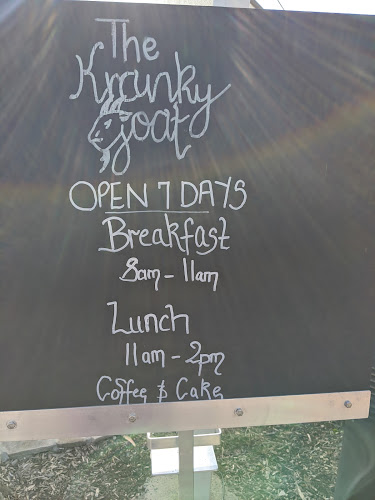 The
Kranky
Goat
OPEN 7 DAYS
Breakfast
8am - 11am
Lunch
11am - 2pm
Coffee & Cake